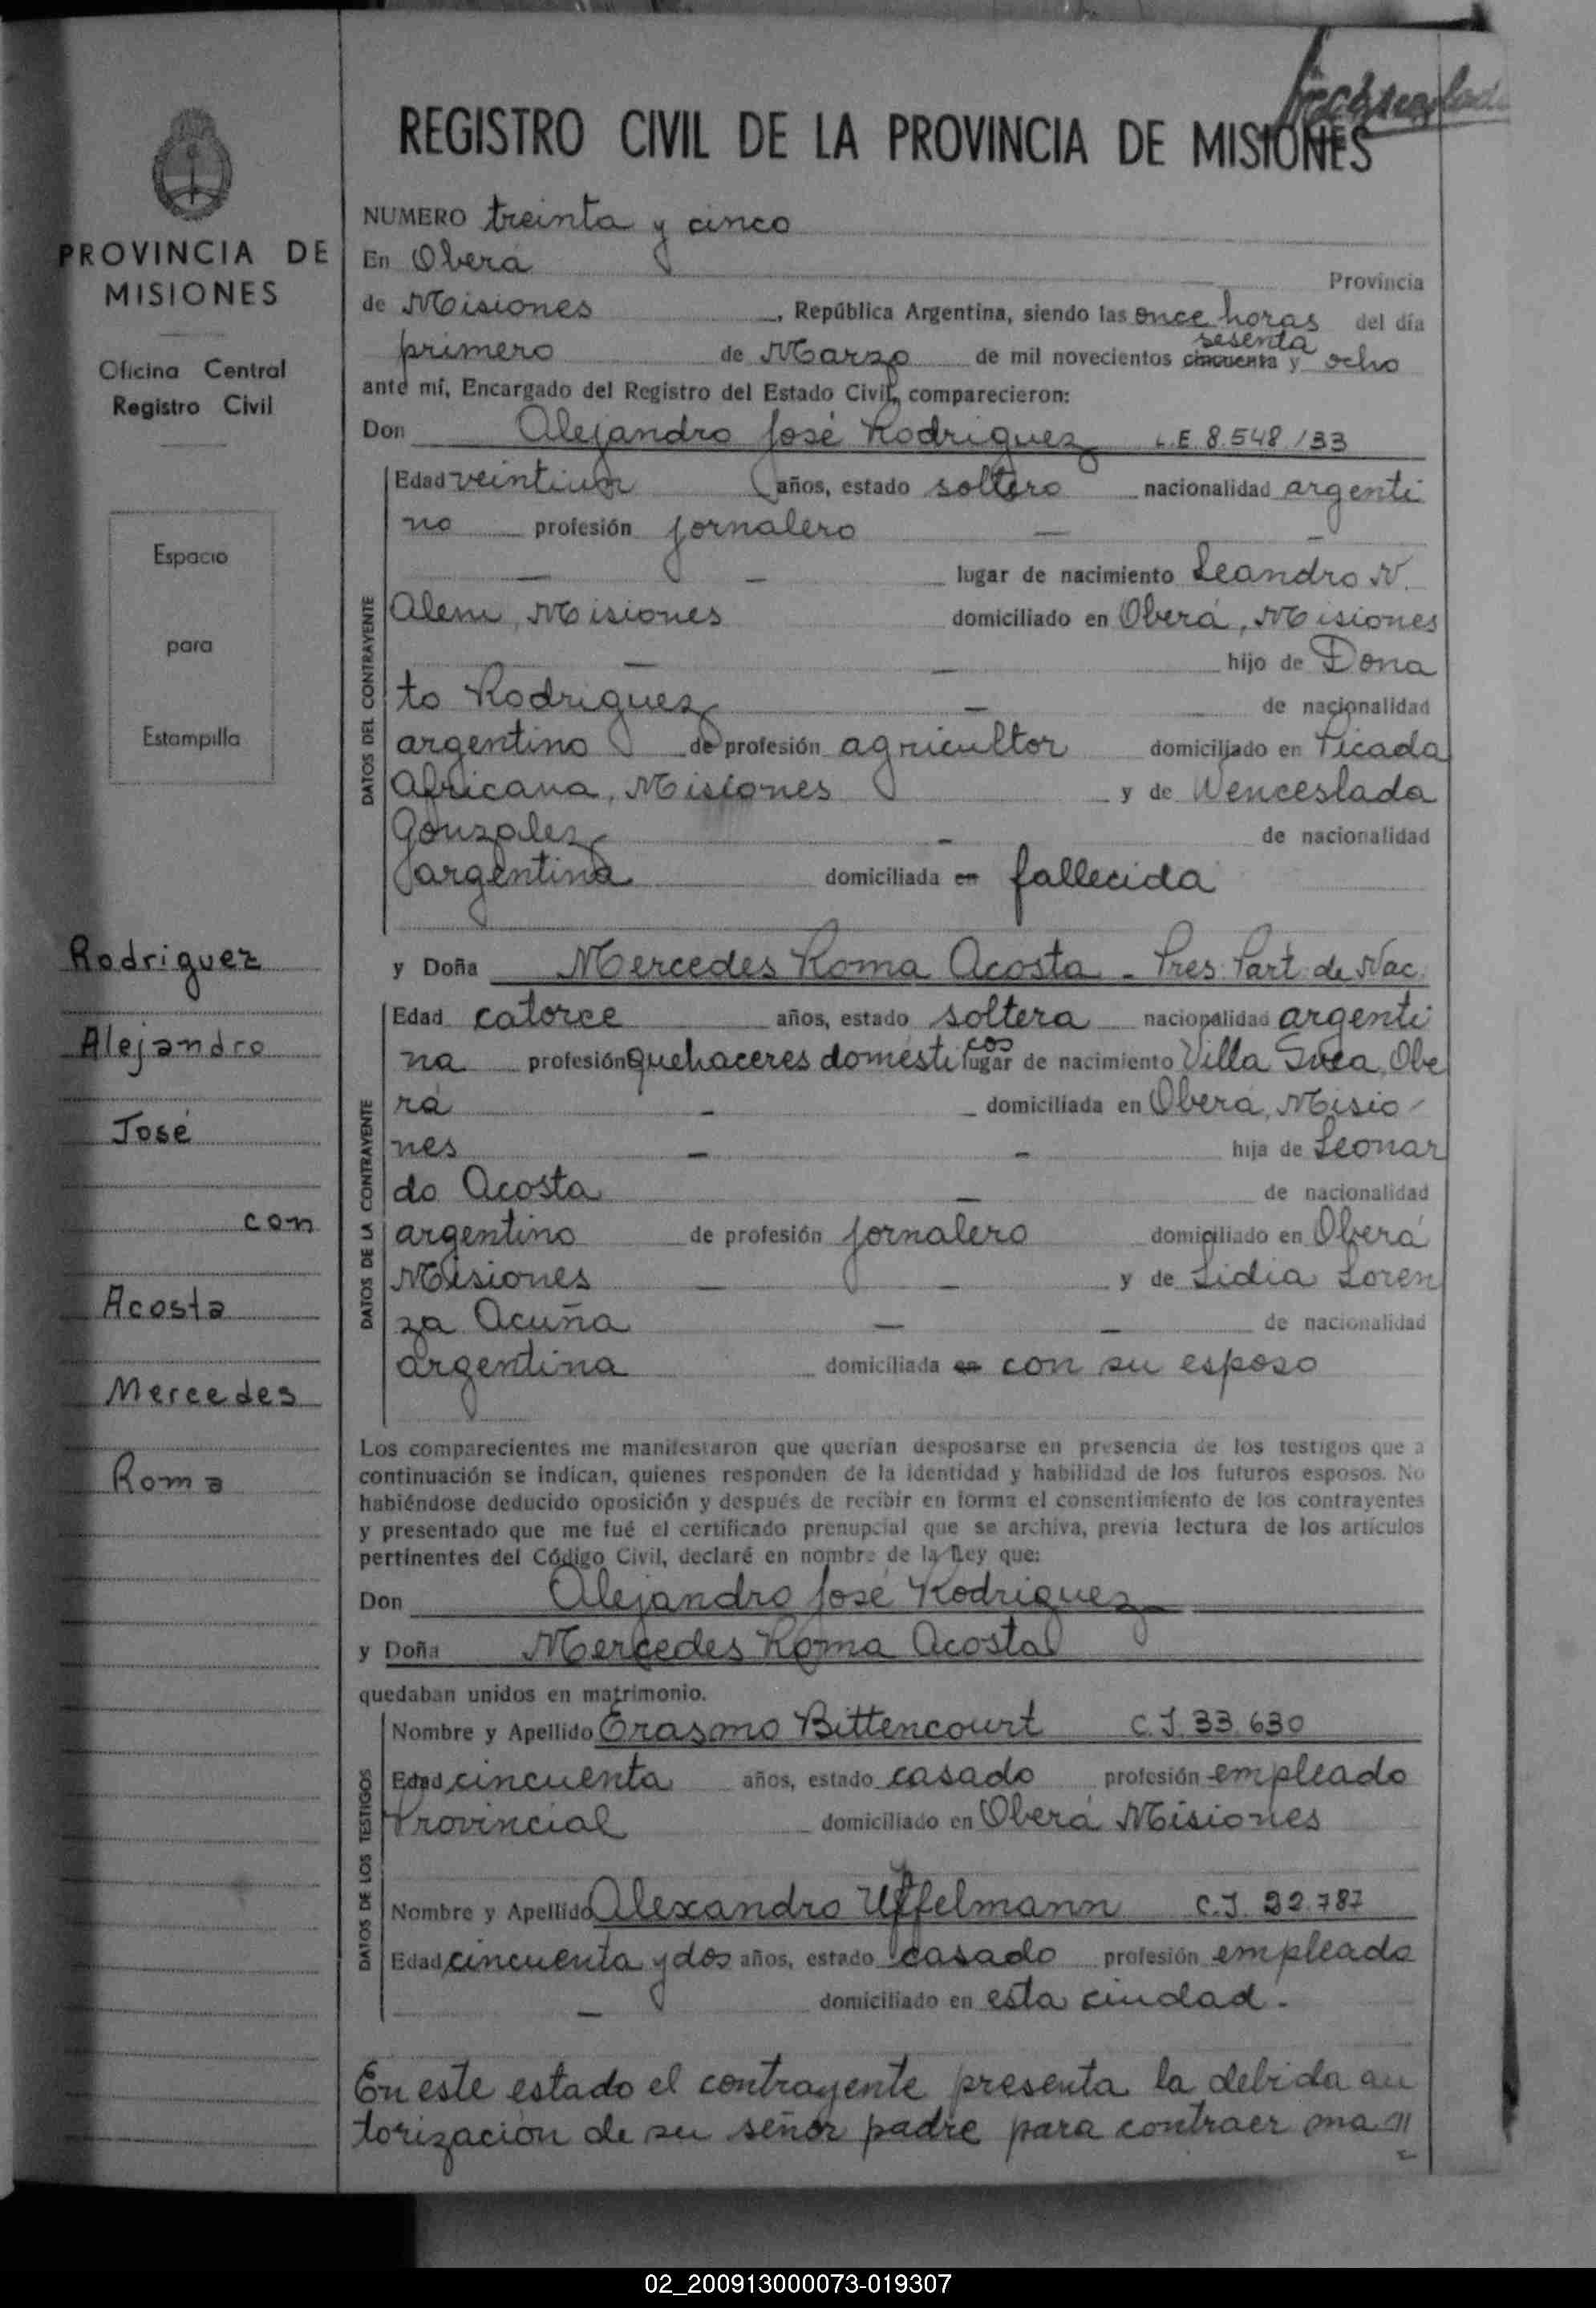 REGISTRO CIVIL DE LA PROVINCIA DE MISIONES
PROVINCIA DE
MISIONES
Oficina Central
Registro Civil
Espacio
para
Estampilla
Rodriguez
Alejandro
José
con
Acosta
Mercedes
Roma
NUMERO treinta y cinco
En Oberá Provincia
de Misiones, República Argentina, siendo las once horas del día
sesenta
primero de Marzo de mil novecientos cincuenta y ocho
ante mí, Encargado del Registro del Estado Civil, comparecieron:
Don Alejandro José Rodriguez L.E 8.548/33
DATOS DEL CONTRAYENTE
Edad veintiun años, estado soltero nacionalidad argenti
no profesión jornalero —
— - lugar de nacimiento Leandro N.
Alem, Misiones domiciliado en Oberá, Misiones
— — hijo de Dona
to Rodriguez — de nacionalidad
argentino de profesión agricultor domiciliado en Picada
Africana, Misiones y de Wenceslada
Gonzalez - de nacionalidad
argentina domiciliada en fallecida
y Doña Mercedes Roma Acosta - Pres. Part. de Nac.
DATOS DE LA CONTRAYENTE
Edad catorce años, estado soltera nacionalidad argenti
na profesión quehaceres domésticos lugar de nacimiento Villa Svea, Obe
rá - domiciliada en Oberá, Misio
nes - - hija de Leonar
do Acosta — de nacionalidad
argentino de profesión jornalero domiciliado en Oberá
Misiones — — y de Lidia Loren
za Acuña — — de nacionalidad
argentina domiciliada en con su esposo
Los comparecientes me manifestaron que querían desposarse en presencia de los testigos que a
continuación se indican, quienes responden de la identidad y habilidad de los futuros esposos. No
habiéndose deducido oposición y después de recibir en forma el consentimiento de los contrayentes
y presentado que me fué el certificado prenupcial que se archiva, previa lectura de los artículos
pertinentes del Código Civil, declaré en nombre de la Ley que:
Don Alejandro José Rodriguez
y Doña Mercedes Roma Acosta
quedaban unidos en matrimonio.
DATOS DE LOS TESTIGOS
Nombre y Apellido Erasmo Bittencourt C.I. 33.630
Edad cincuenta años, estado casado profesión empleado
Provincial domiciliado en Oberá Misiones
Nombre y Apellido Alexandro Uffelmann C.I. 22.787
Edad cincuenta y dos años, estado casado profesión empleado
— domiciliado en esta ciudad.-
En este estado el contrayente presenta la debida au
torización de su señor padre para contraer ma //
02_200913000073-019307